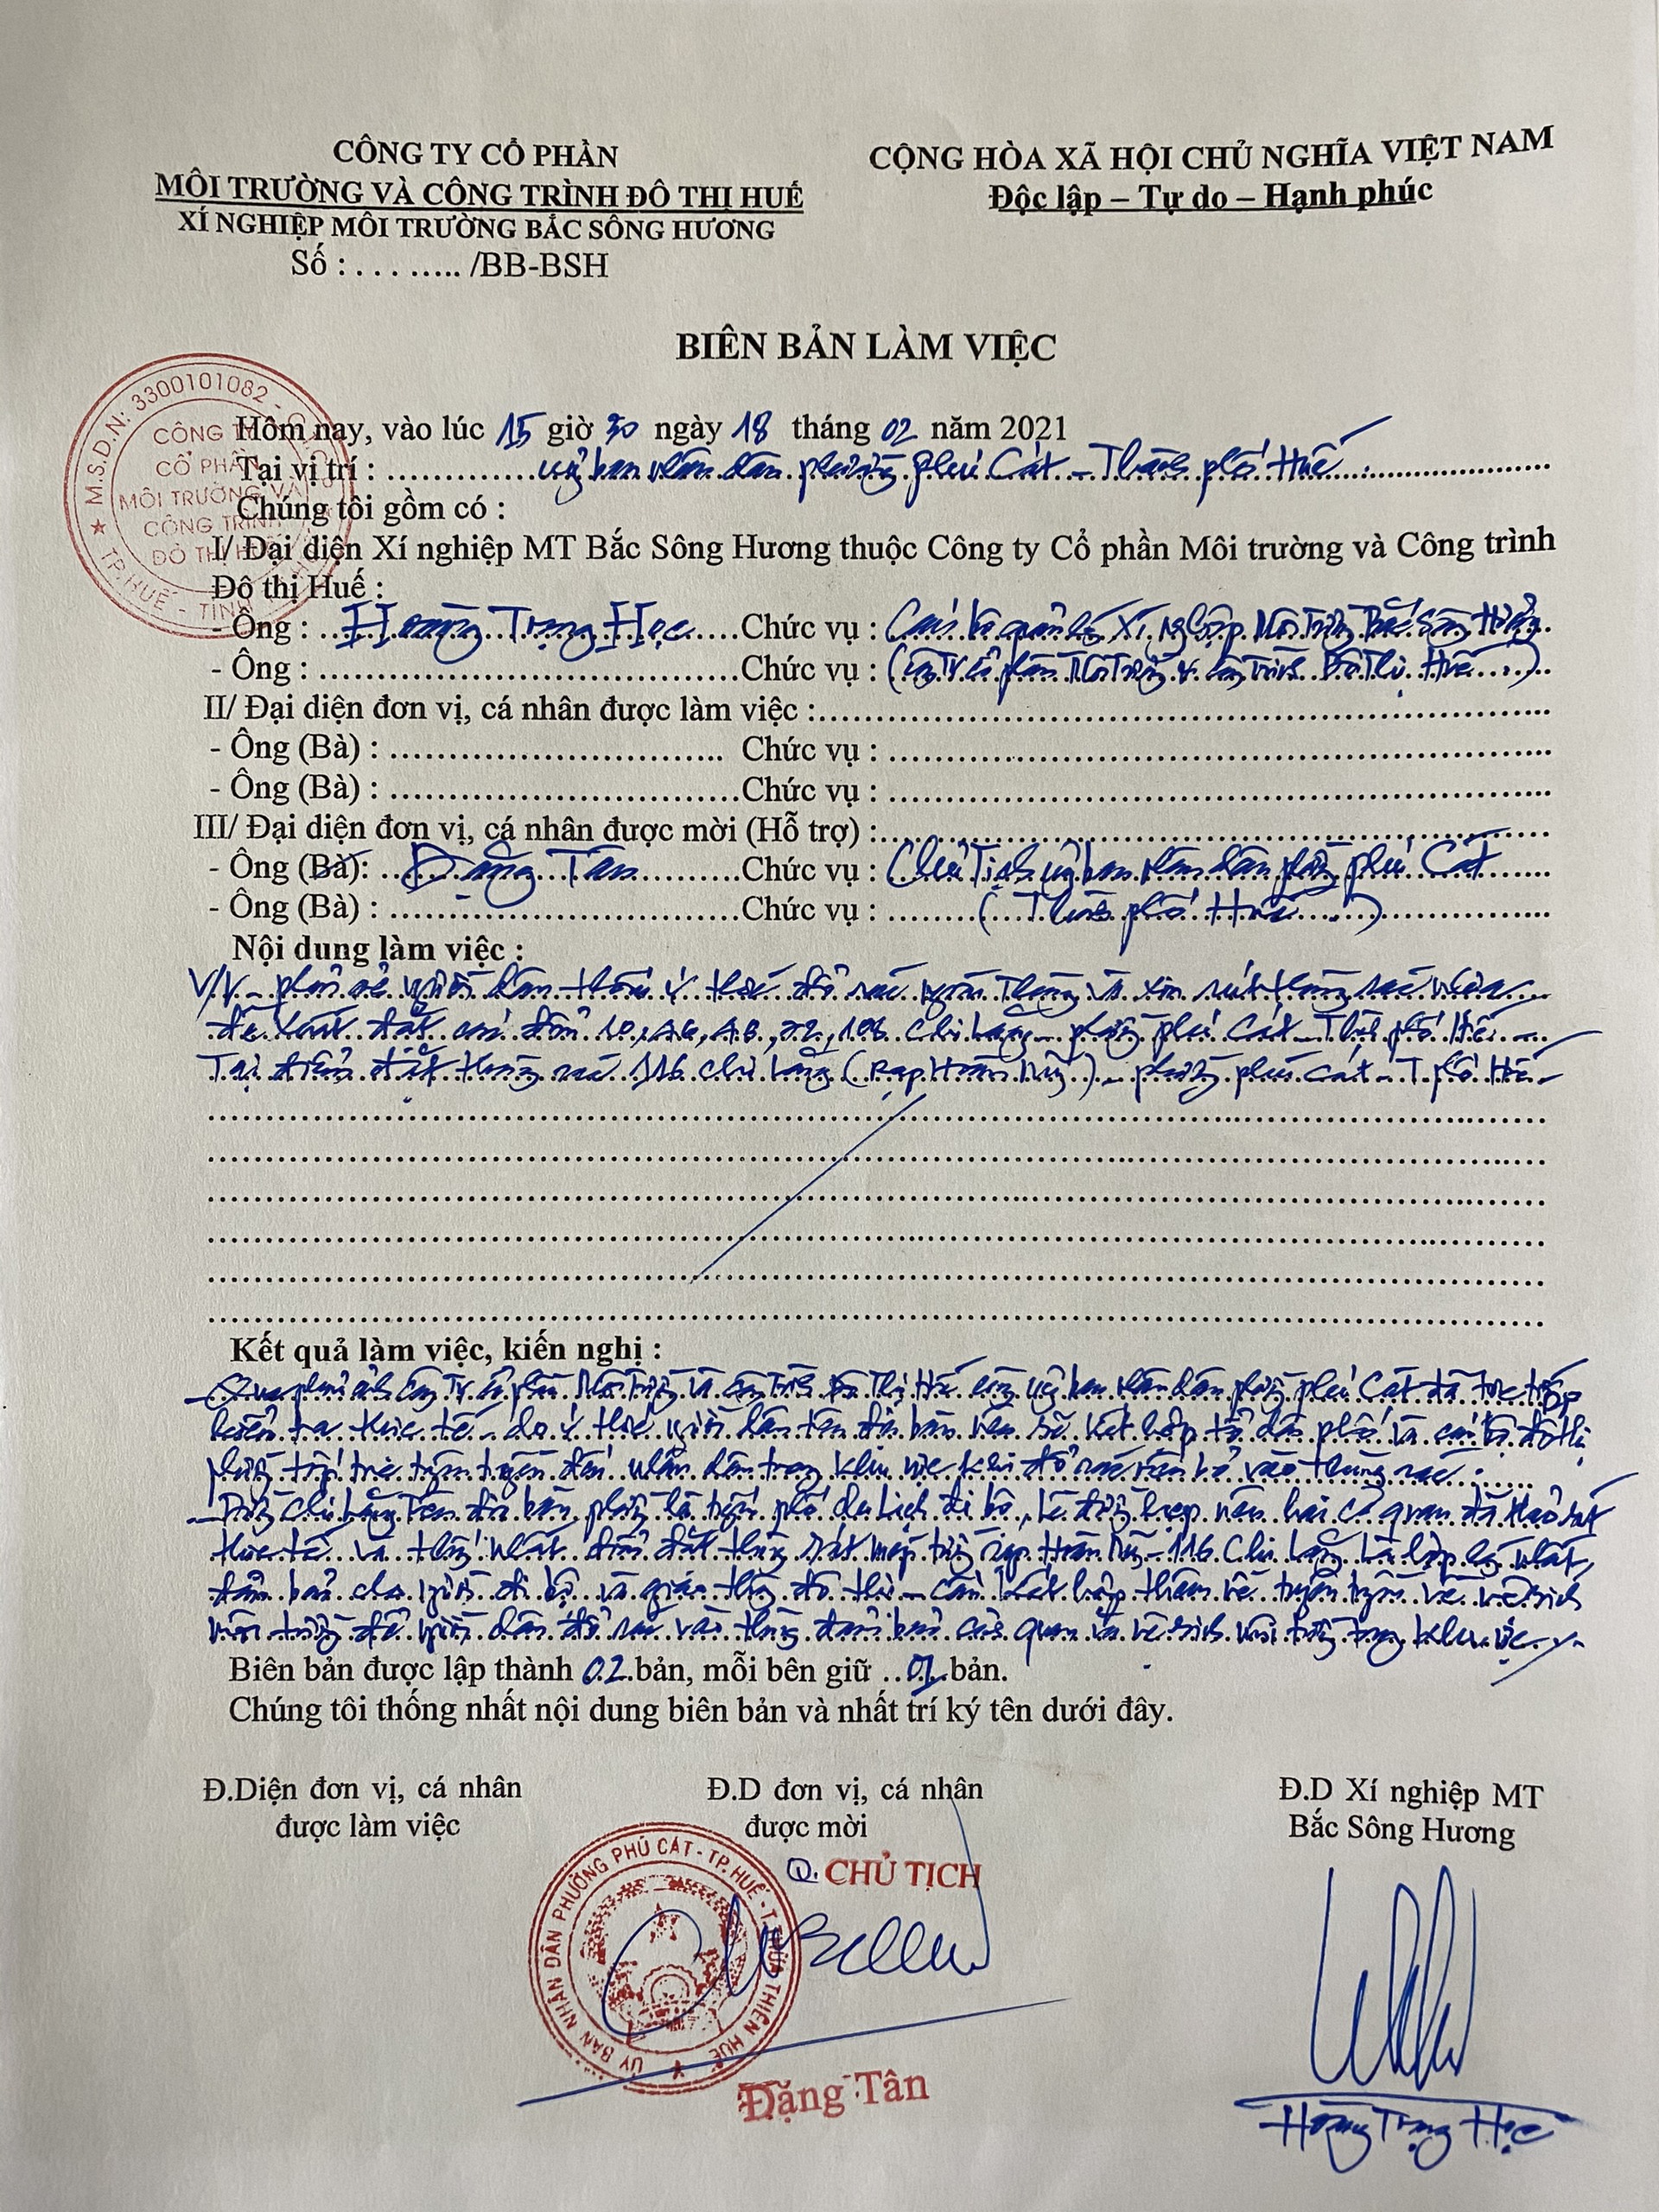 CÔNG TY CỔ PHẦN
MÔI TRƯỜNG VÀ CÔNG TRÌNH ĐÔ THỊ HUẾ
XÍ NGHIỆP MÔI TRƯỜNG BẮC SÔNG HƯƠNG
Số : . . . ….. /BB-BSH
CỘNG HÒA XÃ HỘI CHỦ NGHĨA VIỆT NAM
Độc lập – Tự do – Hạnh phúc
BIÊN BẢN LÀM VIỆC
M.S.D.N: 3300101082
CÔNG TY
CỔ PHẦN
MÔI TRƯỜNG VÀ
CÔNG TRÌNH
ĐÔ THỊ HUẾ
TP.HUẾ - TỈNH
Hôm nay, vào lúc 15 giờ 30 ngày 18 tháng 02 năm 2021
Tại vị trí : uỷ ban nhân dân phường Phú Cát – Thành phố Huế
Chúng tôi gồm có :
I/ Đại diện Xí nghiệp MT Bắc Sông Hương thuộc Công ty Cổ phần Môi trường và Công trình
Đô thị Huế :
- Ông : Hoàng Trọng Học Chức vụ : Cán bộ quản lý Xí Nghiệp Môi Trường Bắc Sông Hương
- Ông : Chức vụ : (Công Ty Cổ phần Môi Trường & Công Trình Đô Thị Huế)
II/ Đại diện đơn vị, cá nhân được làm việc :
- Ông (Bà) : Chức vụ :
- Ông (Bà) : Chức vụ :
III/ Đại diện đơn vị, cá nhân được mời (Hỗ trợ) :
- Ông (Bà): Đặng Tân Chức vụ : Chủ Tịch uỷ ban nhân dân phường phú Cát
- Ông (Bà) : Chức vụ : ( Thành phố Huế )
Nội dung làm việc :
V/V – người dân thiếu ý thức đổ rác ngoài Thùng và xin rút thùng rác nhựa
đề xuất đặt 10, 46, 48, 72, 108 chi Lăng – phường phú Cát – Thành phố Huế
Tại điểm đặt thùng rác 116 chi Lăng (Rạp Hoàn Mỹ) – phường phú Cát – T.phố Huế
Kết quả làm việc, kiến nghị :
Công Ty Cổ phần Môi Trường và Công Trình Đô Thị Huế cùng uỷ ban nhân dân phường phú Cát đã trực tiếp
kiểm tra thực tế – do ý thức người dân trên địa bàn nên sẽ kết hợp tổ dân phố và cán bộ đô thị
phường tuyên truyền đến nhân dân trong khu vực khi đổ rác bỏ vào thùng rác
– Đường chi Lăng trên địa bàn phường là tuyến phố du lịch đi bộ, lề đường hẹp nên hai cơ quan đã khảo sát
thực tế và thống nhất điểm đặt thùng rạp Hoàn Mỹ – 116 Chi Lăng là hợp lý nhất,
đảm bảo cho người đi bộ và giao thông đô thị – cần kết hợp thêm về tuyên truyền về vệ sinh
môi trường để người dân đổ rác vào thùng đảm bảo quan và vệ sinh môi trường trong khu vực
Biên bản được lập thành 02 bản, mỗi bên giữ 01 bản.
Chúng tôi thống nhất nội dung biên bản và nhất trí ký tên dưới đây.
Đ.Diện đơn vị, cá nhân
được làm việc
Đ.D đơn vị, cá nhân
được mời
Q. CHỦ TỊCH
ỦY BAN NHÂN DÂN PHƯỜNG PHÚ CÁT - TP. HUẾ - T. THỪA THIÊN HUẾ
Đặng Tân
Đ.D Xí nghiệp MT
Bắc Sông Hương
Hoàng Trọng Học